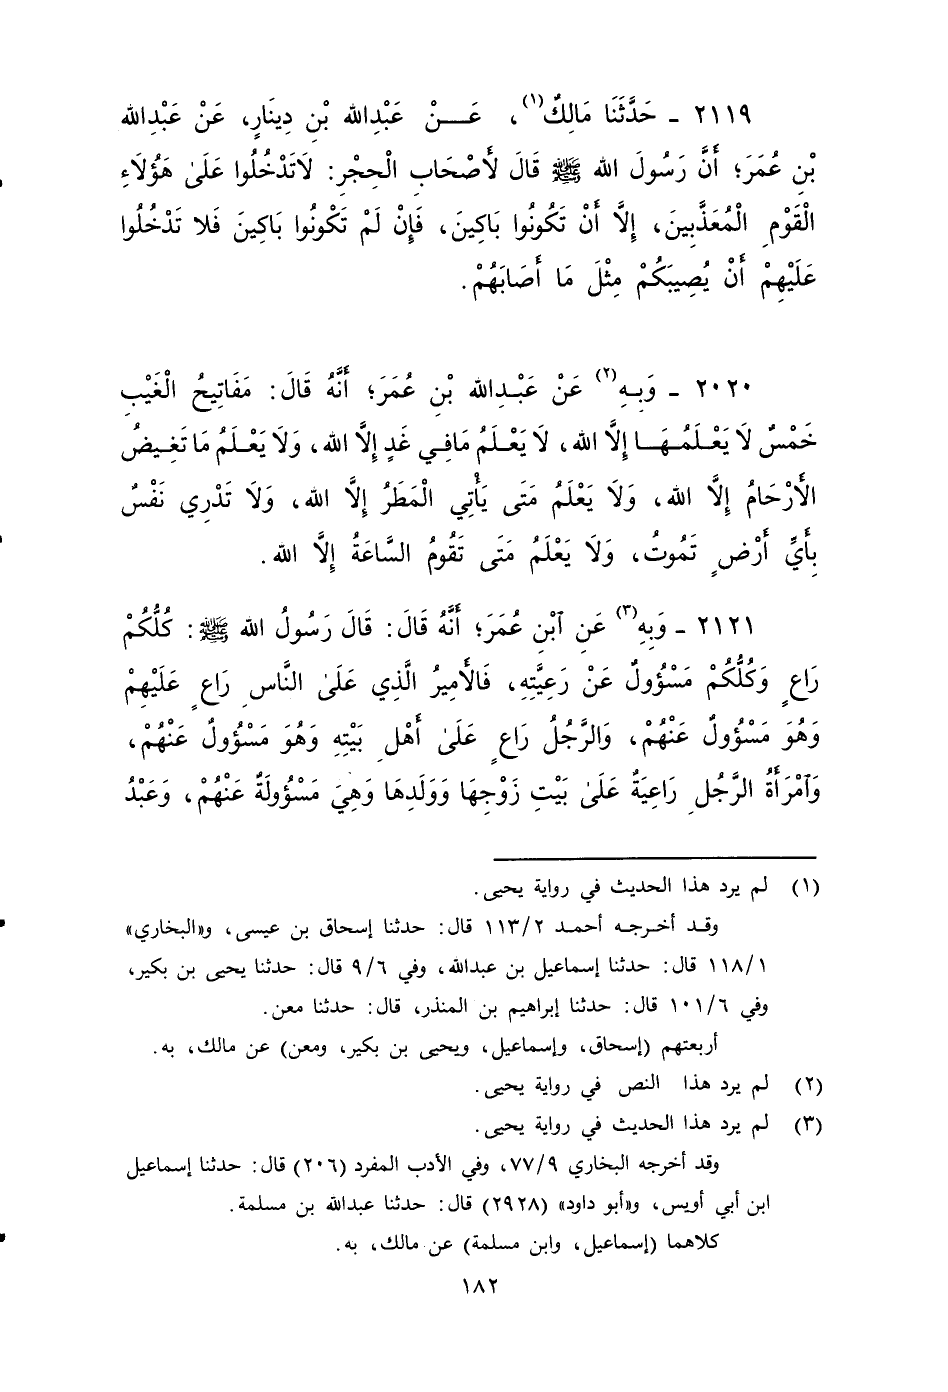 ٢١١٩ - حَدَّثَنَا مَالِكٌ(١)، عَـــنْ عَبْدِالله بْنِ دِينَارٍ، عَنْ عَبْدِالله
بْنِ عُمَرَ؛ أَنَّ رَسُولَ الله ﷺ قَالَ لأَصْحَابِ الْحِجْرِ: لَاتَدْخُلُوا عَلَىٰ هَؤُلَاءِ
الْقَوْمِ الْمُعَذَّبِينَ، إِلَّا أَنْ تَكُونُوا بَاكِينَ، فَإِنْ لَمْ تَكُونُوا بَاكِينَ فَلا تَدْخُلُوا
عَلَيْهِمْ أَنْ يُصِيبَكُمْ مِثْلَ مَا أَصَابَهُمْ.
٢٠٢٠ - وَبِـهِ(٢) عَنْ عَبْـدِالله بْنِ عُمَرَ؛ أَنَّهُ قَالَ: مَفَاتِيحُ الْغَيْبِ
خَمْسٌ لَا يَعْـلَمُـهَـا إِلَّا الله، لَا يَعْـلَمُ مَافِي غَدٍ إِلَّا الله، وَلَا يَعْـلَمُ مَا تَغِيضُ
الأَرْحَامُ إِلَّا الله، وَلَا يَعْلَمُ مَتَى يَأْتِي الْمَطَرُ إِلَّا الله، وَلَا تَدْرِي نَفْسٌ
بِأَيِّ أَرْضٍ تَمُوتُ، وَلَا يَعْلَمُ مَتَى تَقُومُ السَّاعَةُ إِلَّا الله.
٢١٢١ - وَبِهِ(٣) عَنِ ٱبْنِ عُمَرَ؛ أَنَّهُ قَالَ: قَالَ رَسُولُ الله ﷺ: كُلُّكُمْ
رَاعٍ وَكُلُّكُمْ مَسْؤُولٌ عَنْ رَعِيَّتِهِ، فَالأَمِيرُ الَّذِي عَلَىٰ النَّاسِ رَاعٍ عَلَيْهِمْ
وَهُوَ مَسْؤُولٌ عَنْهُمْ، وَالرَّجُلُ رَاعٍ عَلَىٰ أَهْلِ بَيْتِهِ وَهُوَ مَسْؤُولٌ عَنْهُمْ،
وَٱمْرَأَةُ الرَّجُلِ رَاعِيَةٌ عَلَىٰ بَيْتِ زَوْجِهَا وَوَلَدِهَا وَهِيَ مَسْؤُولَةٌ عَنْهُمْ، وَعَبْدُ
(١) لم يرد هذا الحديث في رواية يحيى.
وقـد أخـرجـه أحمـد ١١٣/٢ قال: حدثنا إسحاق بن عيسى، و«البخاري»
١١٨/١ قال: حدثنا إسماعيل بن عبدالله، وفي ٩/٦ قال: حدثنا يحيى بن بكير،
وفي ١٠١/٦ قال: حدثنا إبراهيم بن المنذر، قال: حدثنا معن.
أربعتهم (إسحاق، وإسماعيل، ويحيى بن بكير، ومعن) عن مالك، به.
(٢) لم يرد هذا النص في رواية يحيى.
(٣) لم يرد هذا الحديث في رواية يحيى.
وقد أخرجه البخاري ٧٧/٩، وفي الأدب المفرد (٢٠٦) قال: حدثنا إسماعيل
ابن أبي أويس، و«أبو داود» (٢٩٢٨) قال: حدثنا عبدالله بن مسلمة.
كلاهما (إسماعيل، وابن مسلمة) عن مالك، به.
١٨٢